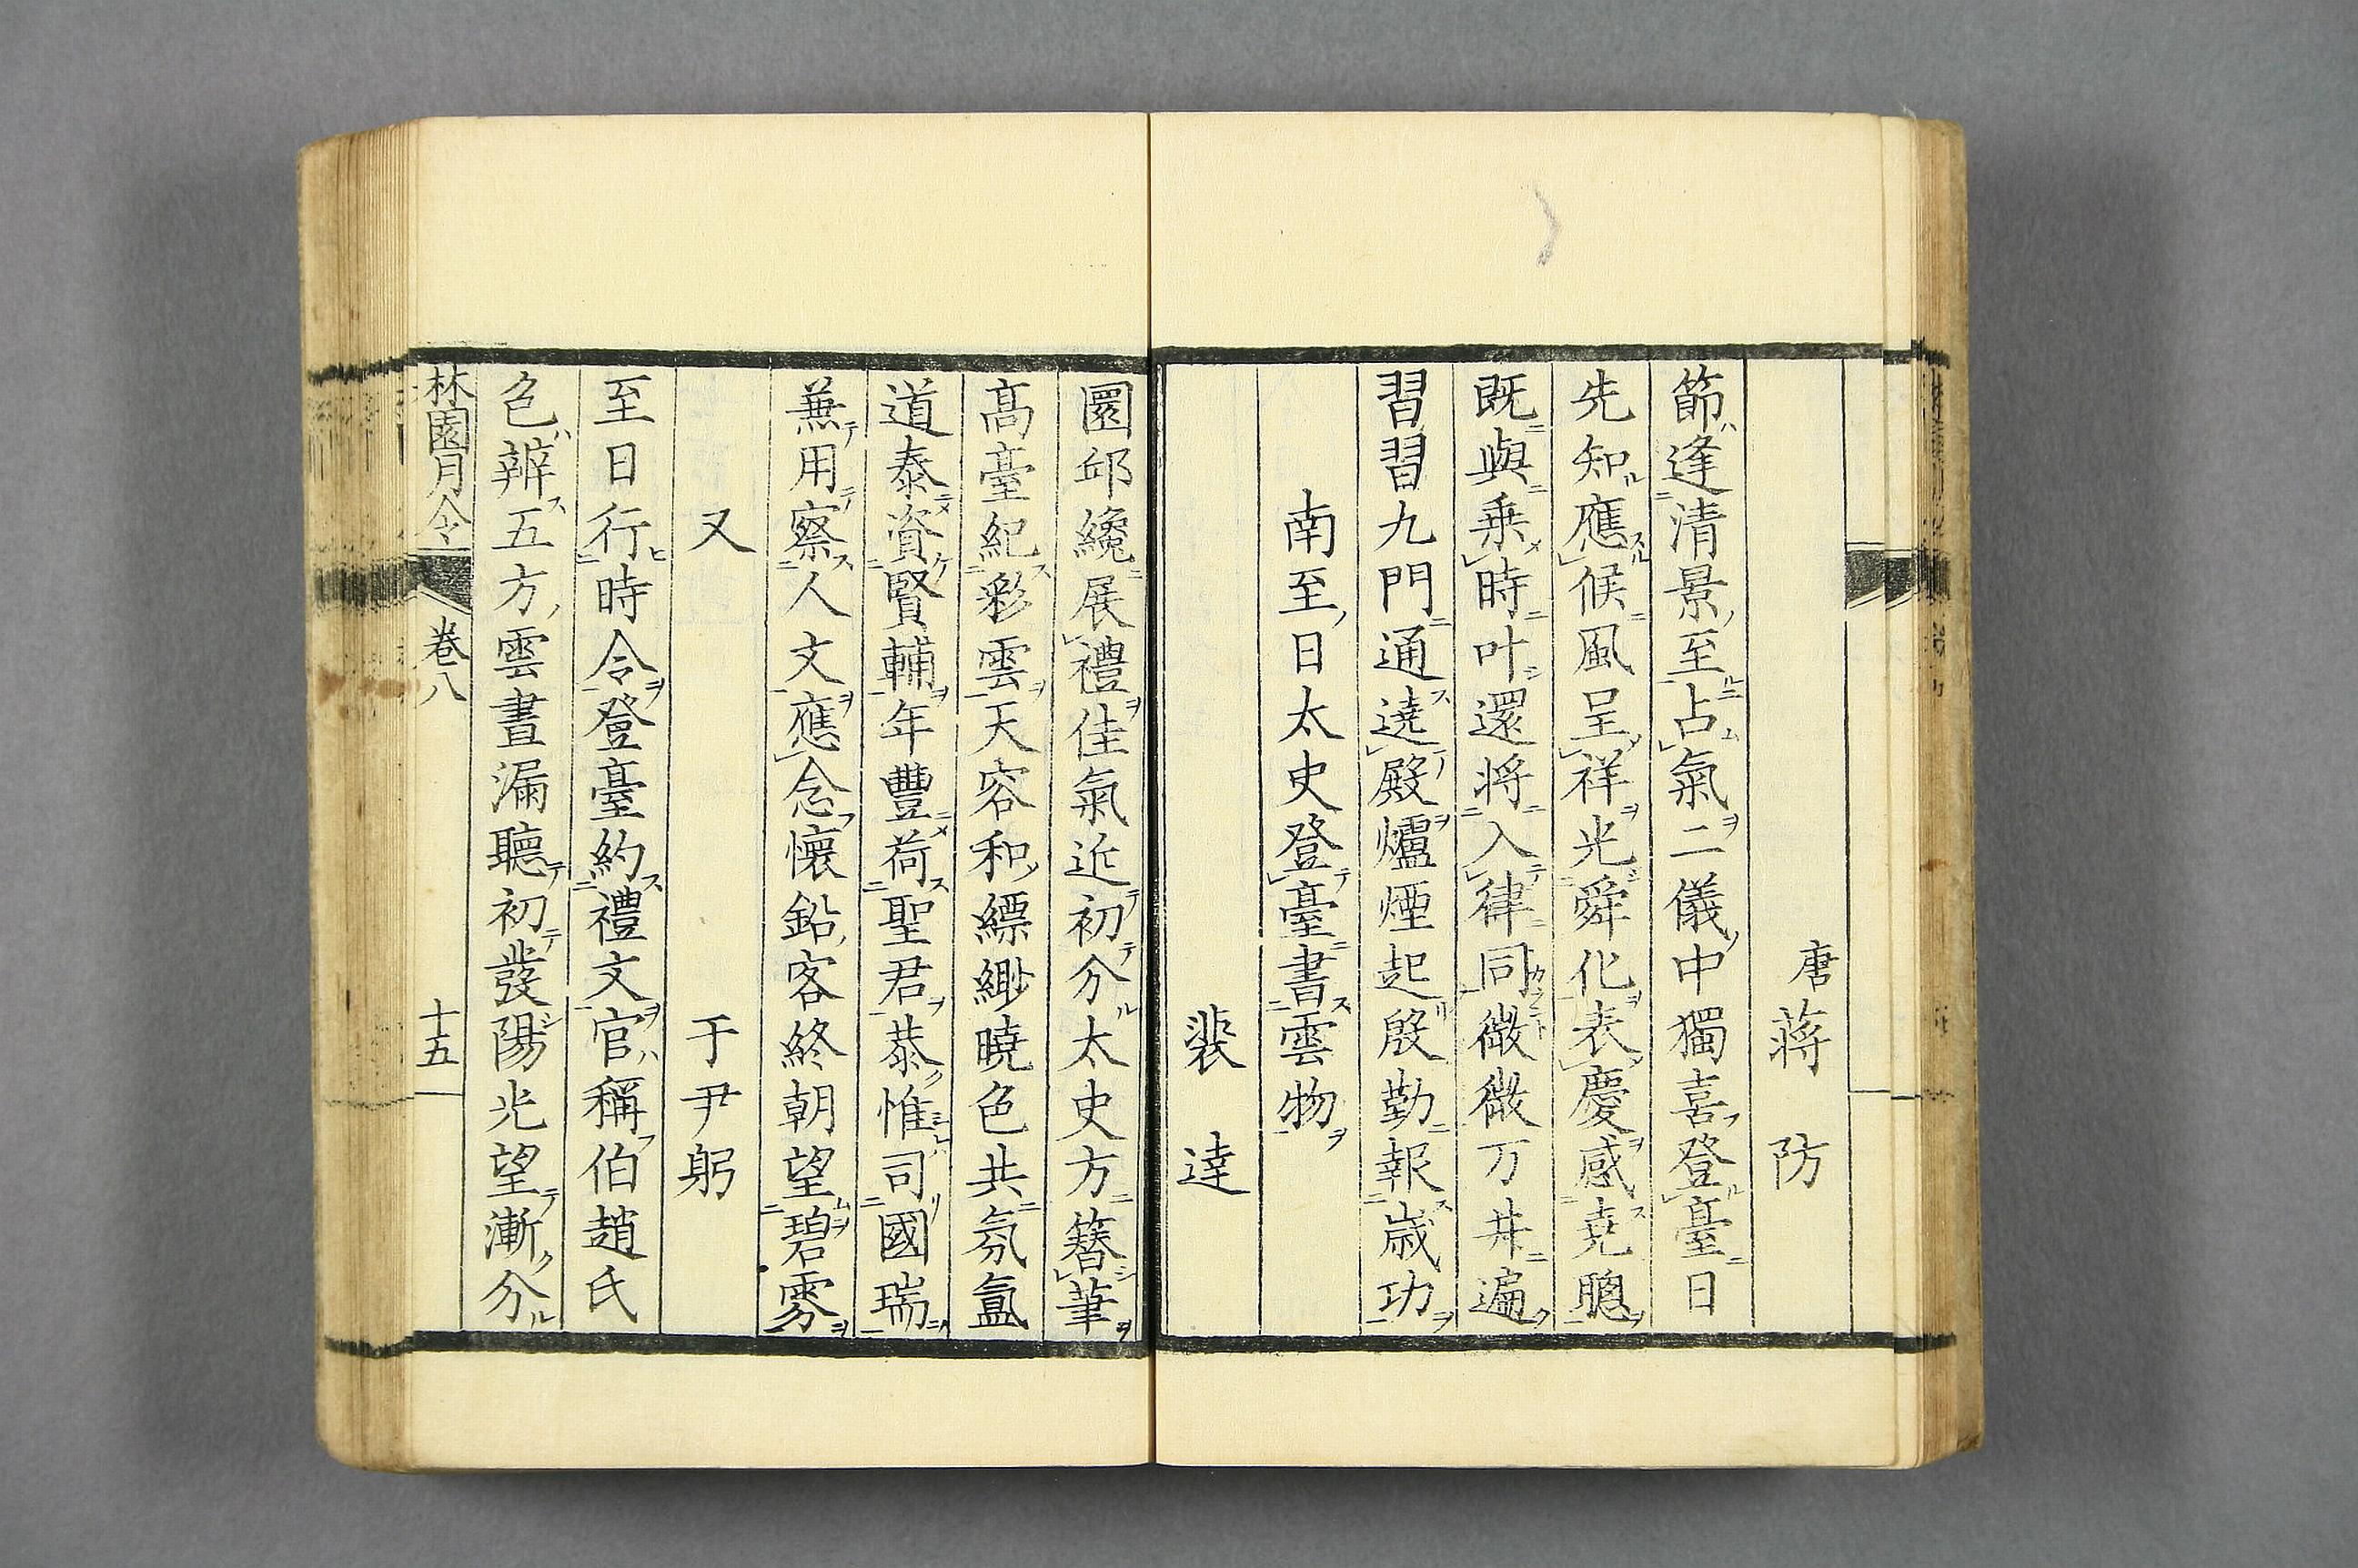 唐 蔣 防
節逢清景至占氣二儀中獨喜登臺日
先知應候風呈祥光舜化表慶感堯聰
既與乘時叶還將入律同微微万井遍
習習九門通遶殿爐煙起殷勤報歳功
南至日太史登臺書雲物
裴 達
圜邱纔展禮佳氣近初分太史方簪筆
髙臺紀彩雲天容和縹緲曉色共氛氳
道泰資賢輔年豐荷聖君恭惟司國瑞
兼用察人文應念懷鉛客終朝望碧雰
又 于尹躬
至日行時令登臺約禮文官稱伯趙氏
色辨五方雲晝漏聽初發陽光望漸分
林園月令 卷八 十五